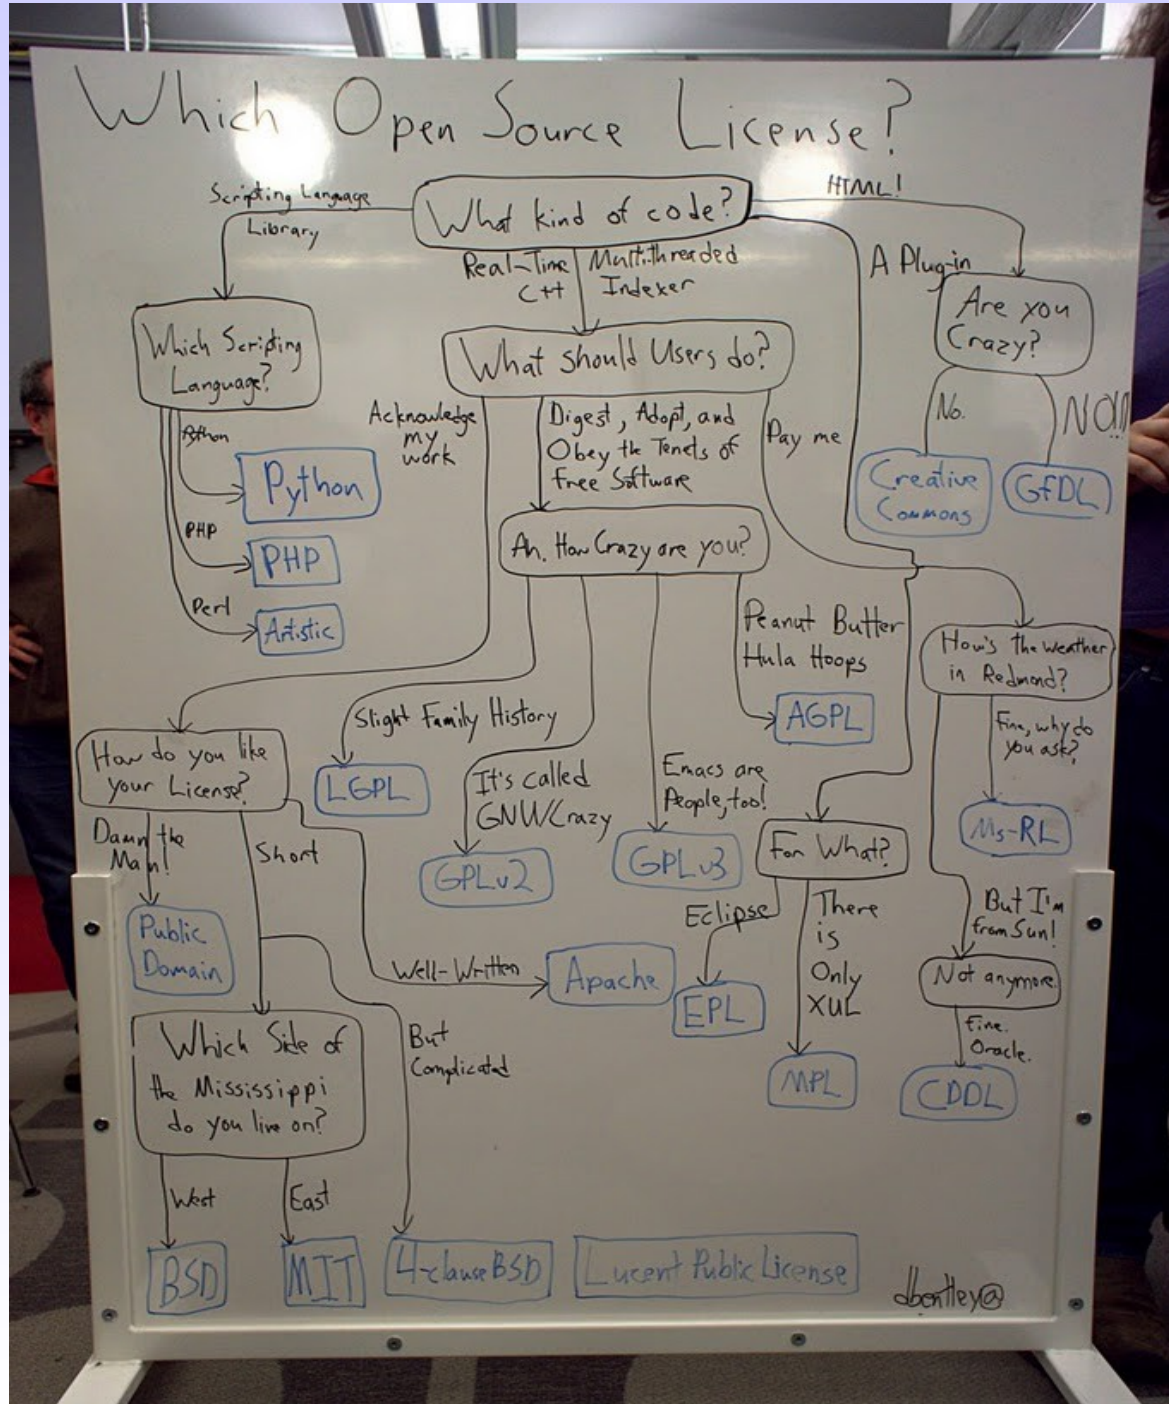 Which Open Source License?
What kind of code?
Scripting Language
Library
Real-Time
C++
Multithreaded
Indexer
A Plug-in
HTML!
Which Scripting
Language?
Python
Python
PHP
PHP
Perl
Artistic
What Should Users do?
Acknowledge
my
work
Digest, Adopt, and
Obey the Tenets of
Free Software
Pay me
Are you
Crazy?
No.
Creative
Commons
GFDL
Ah. How Crazy are you?
Slight Family History
LGPL
It's called
GNU/Crazy
GPLv2
Emacs are
People, too!
GPLv3
Peanut Butter
Hula Hoops
AGPL
How's the weather
in Redmond?
Fine, why do
you ask?
Ms-RL
But I'm
from Sun!
Not anymore.
Fine.
Oracle.
CDDL
For What?
Eclipse
EPL
There
is
Only
XUL
MPL
How do you like
your License?
Damn the
Man!
Public
Domain
Short
Well-Written
Apache
But
Complicated
Which Side of
the Mississippi
do you live on?
West
East
BSD
MIT
4-clause BSD
Lucent Public License
dbentley@